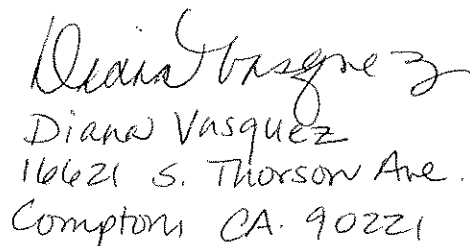 Diana Vasquez
Diana Vasquez
16621 S. Thorson Ave.
Compton, CA. 90221